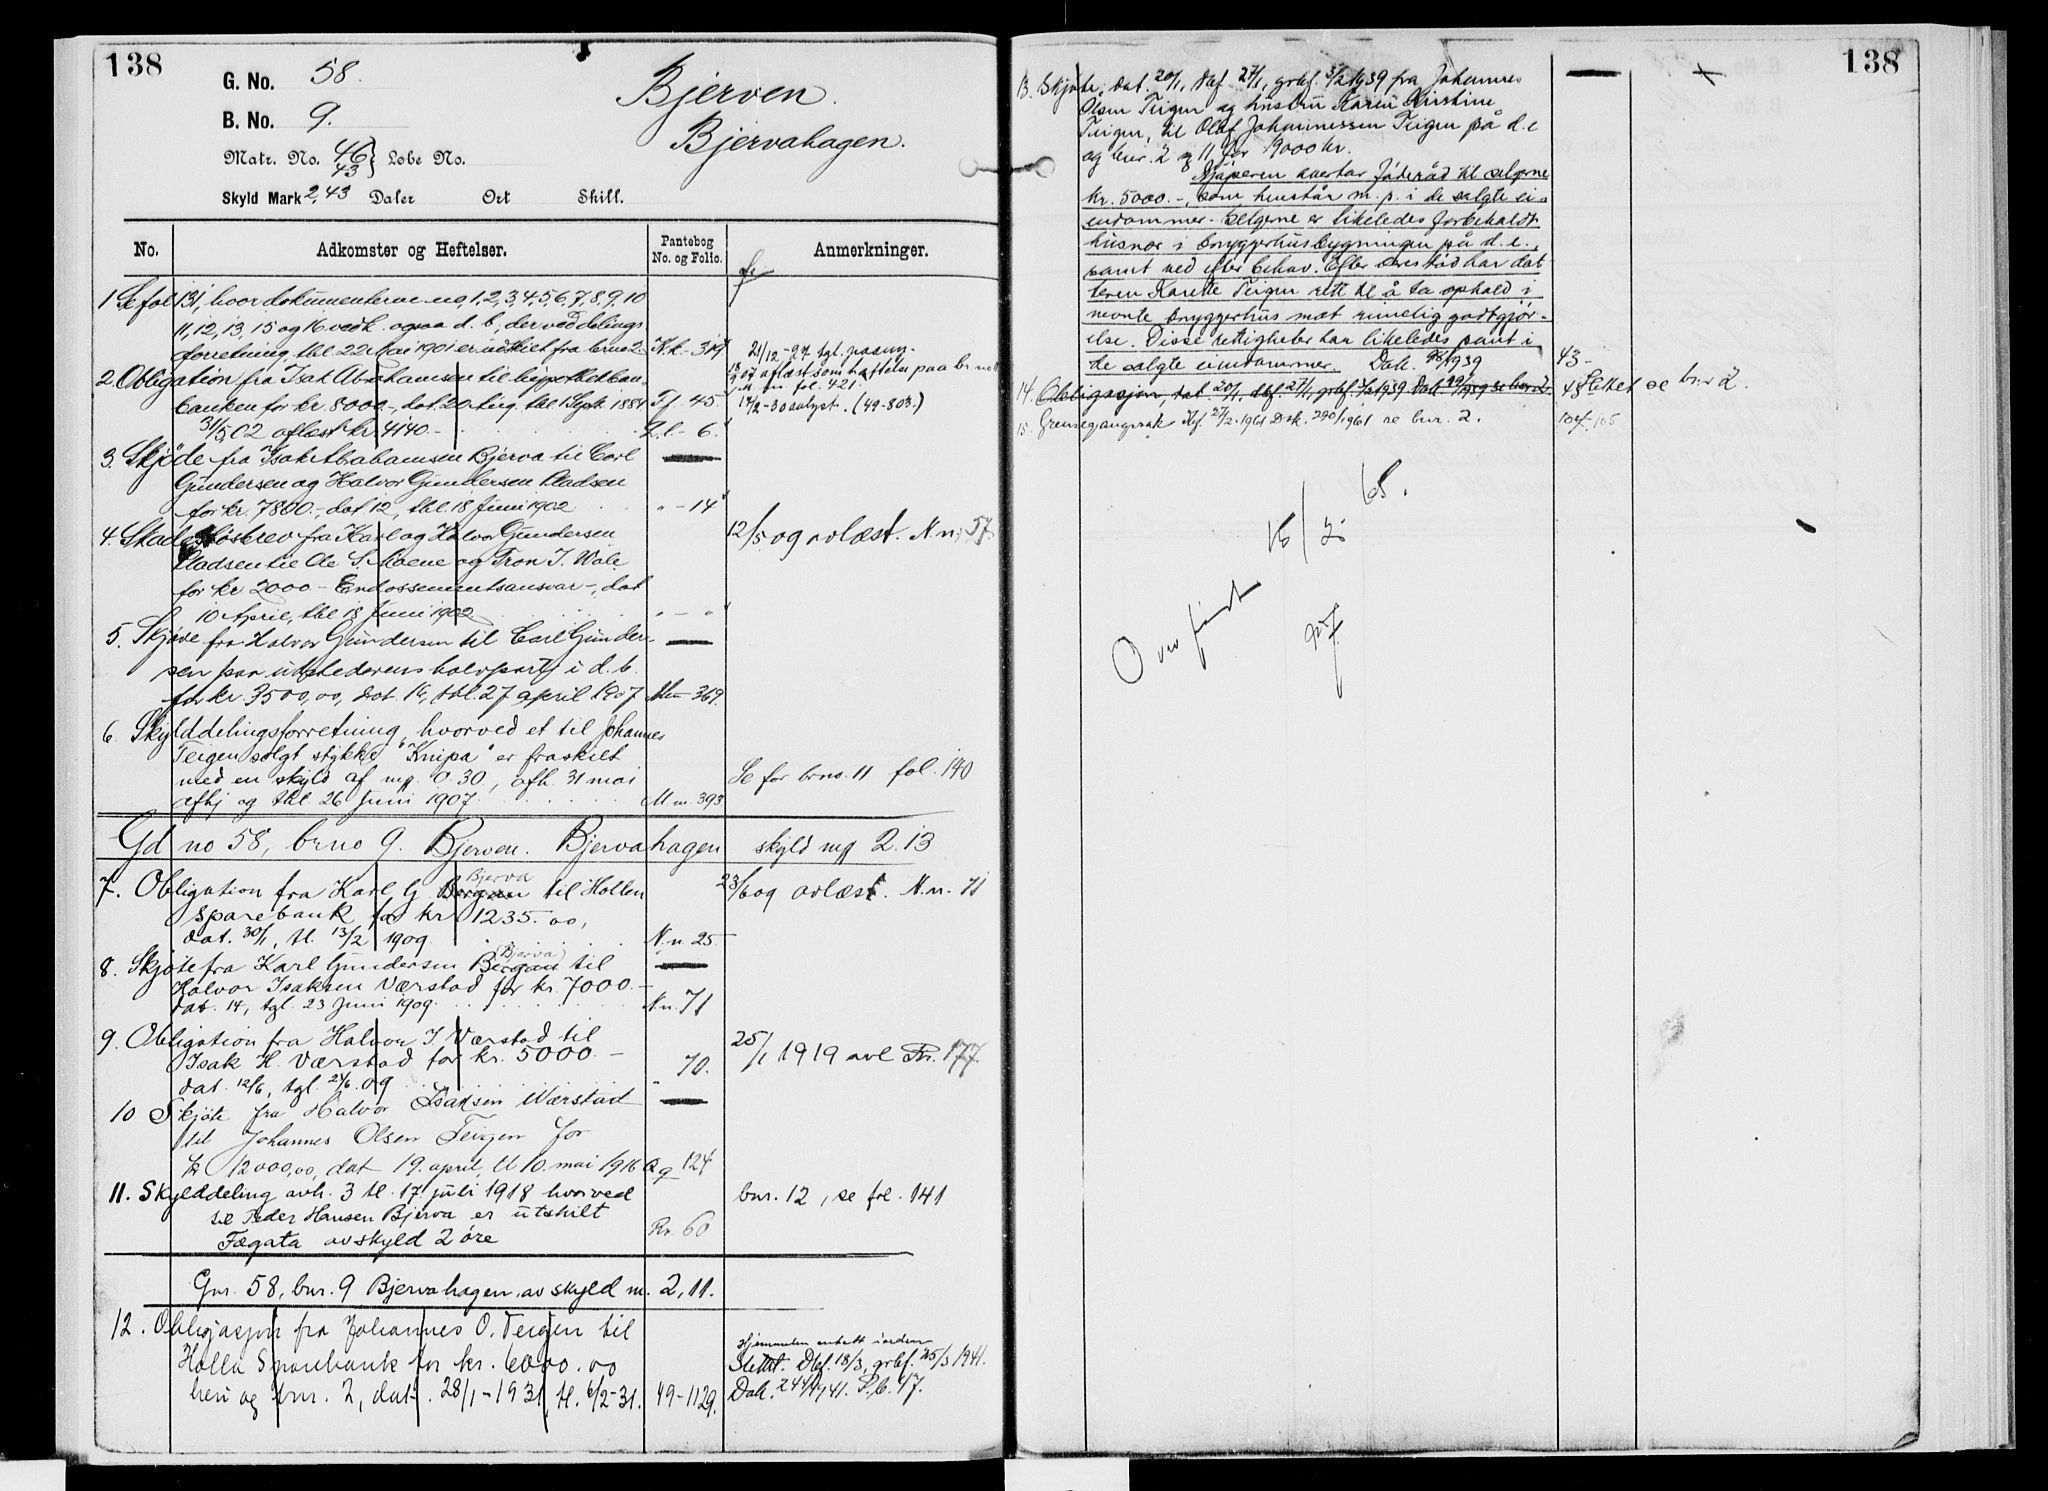 138
G. No. 58.
B. No. 9.
Matr. No. 46 43 } Løbe No.
Skyld Mark 2,43 Daler Ort Skill.
Bjerven.
Bjervahagen.
No. Adkomster og Heftelser. Pantebog No. og Folio. Anmerkninger.
1 Se fol 131, hvor dokumenterne no 1, 2, 3, 4, 5, 6, 7, 8, 9, 10
11, 12, 13, 15 og 16 vedk. ogsaa d. b., der ved delings-
forretning, thl. 22 Mai 1901 er udskilt fra brno 2. K.k - 319
2. Obligation fra Isak Abrahamsen til hypothekban-
banken for kr. 8000.-, dat. 20 Aug. thl 1 Sept. 1884 - 45
31/5 02 aflæst kr. 4140.- L.l - 6.
21/12 - 27 tgl.
07 aflæst som heftelse paa br no
fol. 421.
17/2 - 30 avlyst. (49-803.)
3. Skjøde fra Isak Abrahamsen Bjerva til Carl
Gundersen og Halvor Gundersen Stadsen
for kr. 7800.-, dat. 12, thl. 18 Juni 1902 " - 14
4. Skadesløsbrev fra Karl og Halvor Gundersen
Stadsen til Ole S. Moene og Tron J. Wale
for kr 2000 - Endossementsansvar -, dat
10 April, thl 18 Juni 1902 " - "
12/5 09 avlæst. N.n. 57
5. Skjøde fra Halvor Gundersen til Carl Gunder-
sen paa udstederens halvpart i d. b.
for kr. 3500,00, dat. 16, thl. 27 april 1907 Mm 369.
6. Skylddelingsforretning, hvorved et til Johannes
Teigen solgt stykke "Knipa" er fraskilt
med en skyld af mk. 0.30, afh. 31 mai
afhj og thl 26 Juni 1907. M m. 393
Se for brno. 11 fol. 140
Gd no 58, brno 9. Bjerven. Bjervahagen skyld mk 2.13
7. Obligation fra Karl G. Bergan Bjerva til Hollen
Sparebank for kr 1235.00,
dat. 30/1, tl. 13/2 1909. N.n. 25
23/6 09 avlæst. N.n. 71
8. Skjøte fra Karl Gundersen Bergan Bjerva til
Halvor Isaksen Værstad for kr. 7000.-
dat. 14, tgl. 23 Juni 1909. N.n. 71
9. Obligation fra Halvor I. Værstad til
Isak H. Værstad for kr. 5000.-
dat. 12/6, tgl. 24/6. 09 " 70.
25/1 1919 avl Rr. 177.
10 Skjøte fra Halvor Isaksen Værstad
til Johannes Olsen Teigen for
kr 12000,00, dat 19. april, tl 10. mai 1916 Q q 124
11. Skylddeling avh. 3 tl. 17. juli 1918 hvorved
til Peder Hansen Bjerva er utskilt
Fægata av skyld 2 øre Rr. 60
bnr. 12, se fol. 141
Gnr. 58, bnr. 9 Bjervahagen, av skyld m. 2,11.
12. Obligasjon fra Johannes O. Teigen til
Holla Sparebank for kr. 6000.00
heri og bnr. 2, dat. 28/1-1931, tl. 6/2-31. 49-1129.
Slettet. Dbf. 18/3, grbf. 25/3 1941.
Dok. 244/1941. P.b. 47.
138
13. Skjøte, dat. 20/1, dbf 27/1, grbf. 3/2 1939 fra Johannes
Olsen Teigen og hustru Karen Kirstine
Teigen, til Olaf Johannessen Teigen på d.e
og bnr. 2 og 11 for 19000 kr.
Kjøperen overtar føderåd til selgerne
kr. 5000.-, som henstår m. p. i de solgte ei-
endommer. Selgerne er likeledes forbeholdt
husvær i bryggerhusbygningen på d. e.,
samt ved efter behov. Efter deres død har dat
teren Karette Teigen rett til å ta ophold i
nevnte bryggerhus mot rimelig godtgjør-
else. Disse rettigheter har likeledes pant i
de solgte eiendommer. Dok. 98/1939 43 -
14. Obligasjon, dat. 20/1, dbf. 27/1, grbf. 3/2 1939 Dok. 99/1939 se bnr 2. 43 Slettet se bnr 2.
15. Grensegangssak dbf. 27/2-1961 Dok. 290/1961 se bnr. 2. 104-105
Overført 15/2-65.